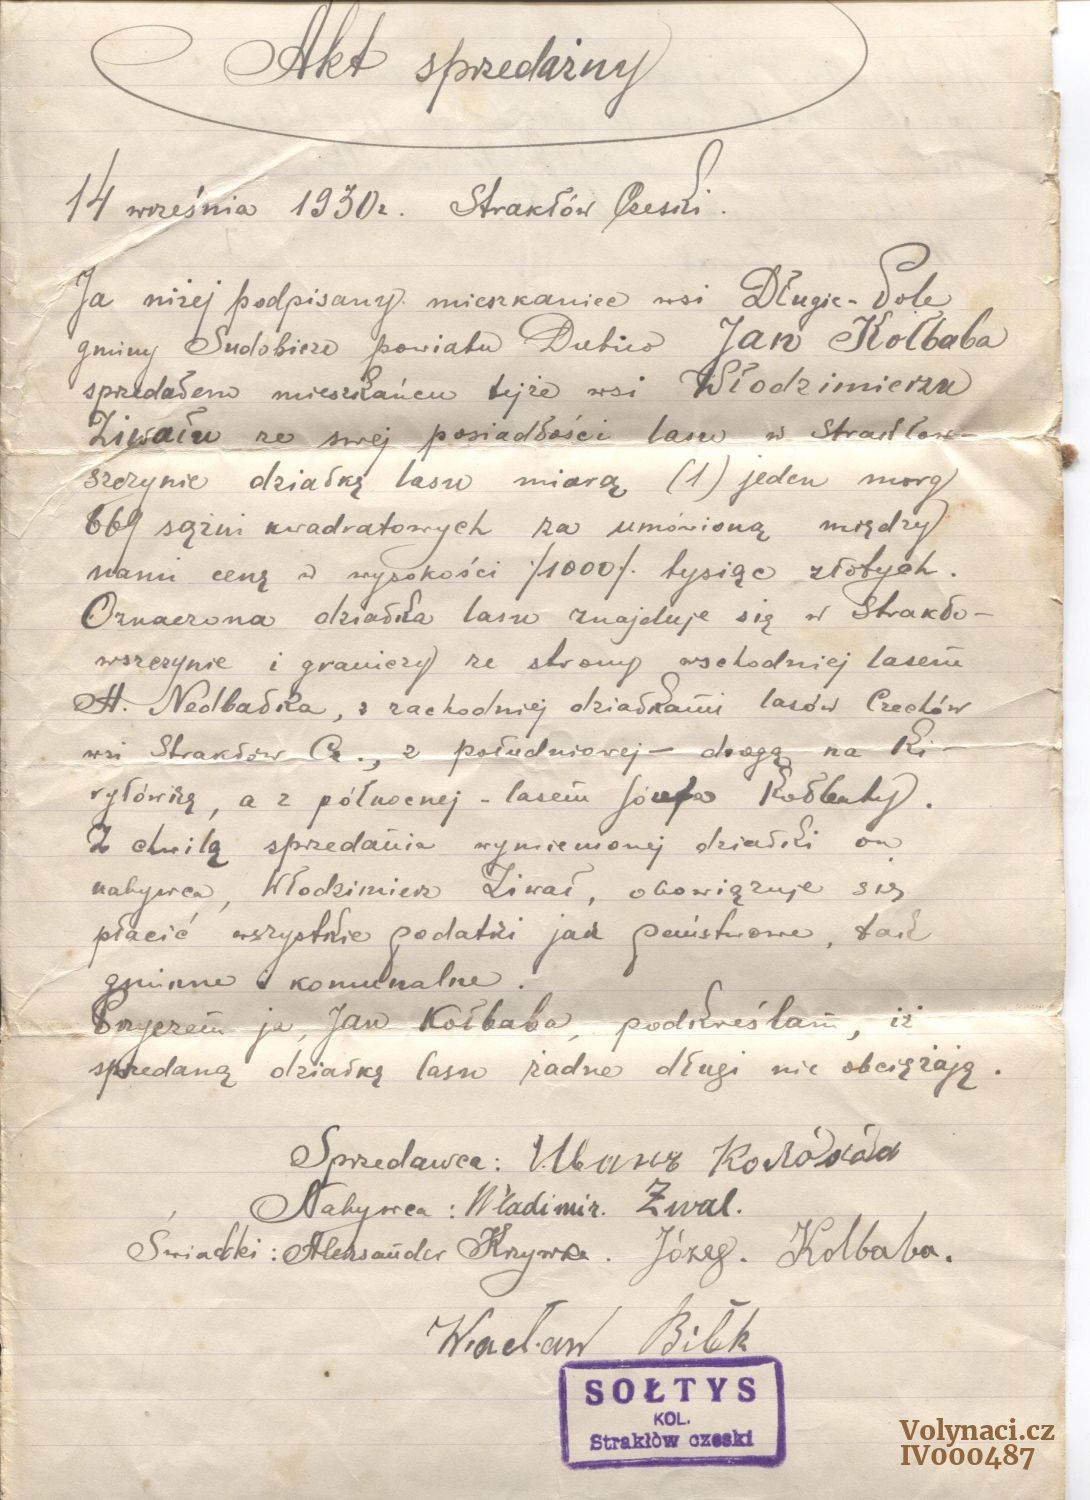 Akt sprzedażny
14 września 1930r. Strakłów Czeski.
Ja niżej podpisany mieszkaniec wsi Długie-Pole
gminy Sudobicze powiatu Dubno Jan Kołbaba
sprzedałem mieszkańcu tejże wsi Włodzimierzu
Ziwału ze swej posiadłości lasu w Strakłow-
szczynie działkę lasu miarą (1) jeden morg
669 sążni kwadratowych za umówioną między
nami cenę w wysokości /1000/. tysiąc złotych.
Oznaczona działka lasu znajduje się w Strakło-
wszczynie i graniczy ze strony wschodniej lasem
A. Nedbałka, z zachodniej działkami lasów Czechów
wsi Strakłów Cz., z południowej - drogą na Ki-
ryłówkę, a z północnej - lasem Józefa Kołbaby.
Z chwilą sprzedania wymienionej działki on
nabywca, Włodzimierz Ziwał, obowiązuje się
płacić wszystkie podatki jak państwowe, tak
gminne i komunalne.
Przyczem ja, Jan Kołbaba, podkreślam, iż
sprzedaną działkę lasu żadne długi nie obciążają.
Sprzedawca:
Nabywca: Władimir. Zwal.
Świadki: Aleksander Krzywka. Józeg. Kolbaba.
Wacław Bilek
SOŁTYS
KOL.
Strakłów czeski
Volynaci.cz
IV000487